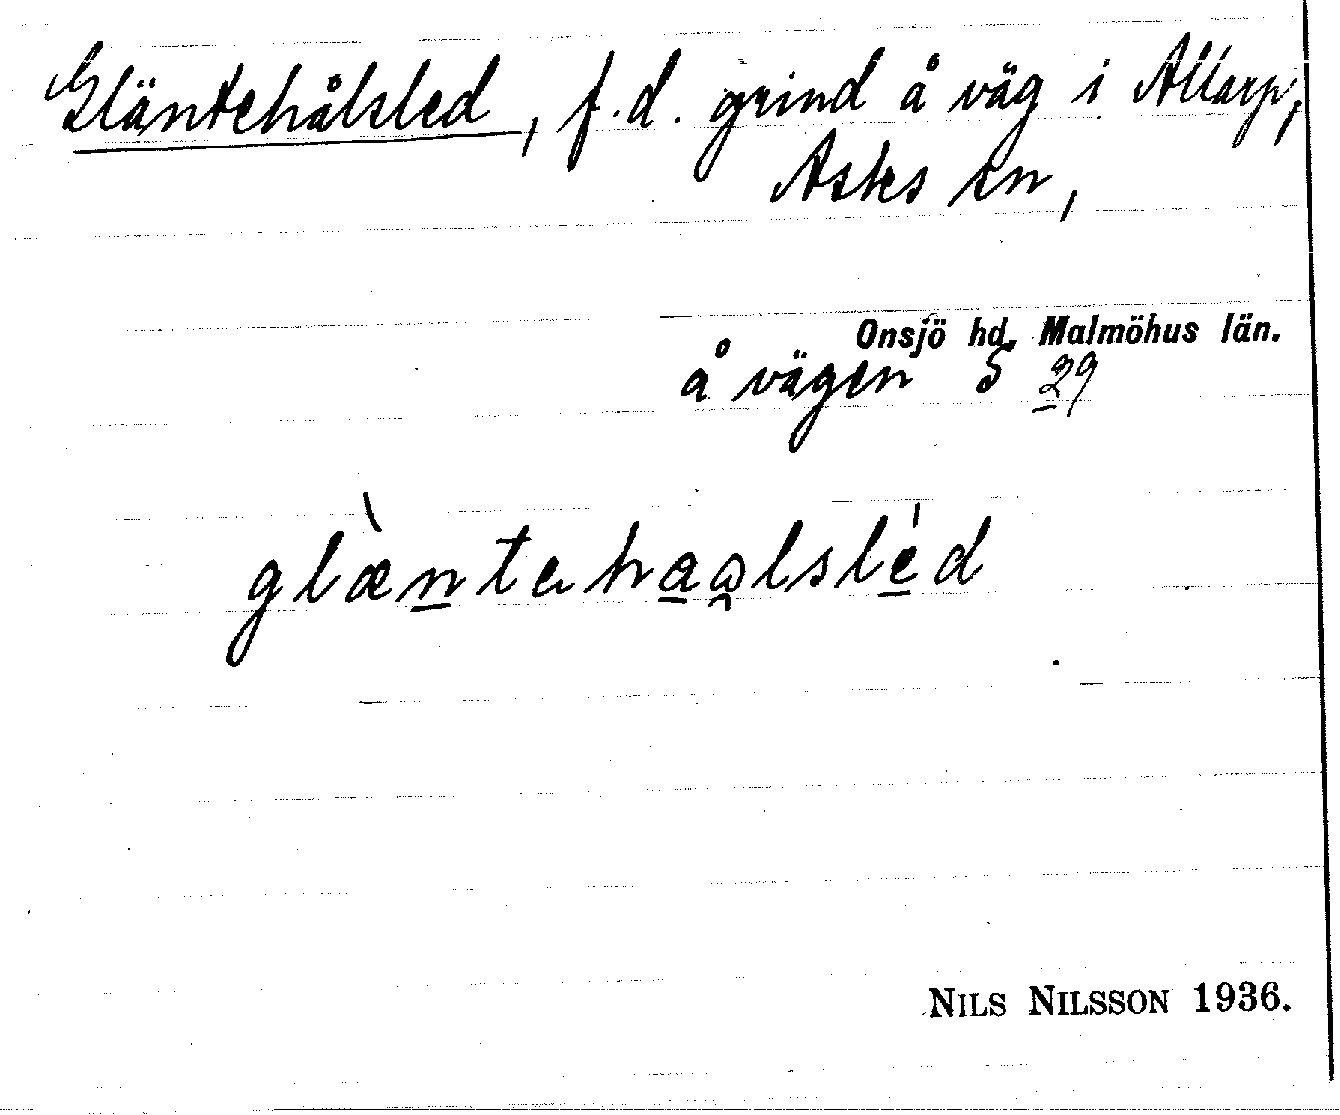 Gläntehålsled, f.d. grind å väg i Allarp,
Asks sn,
Onsjö hd, Malmöhus län.
å vägen S 29
glæ̀ntehaalsléd
NILS NILSSON 1936.